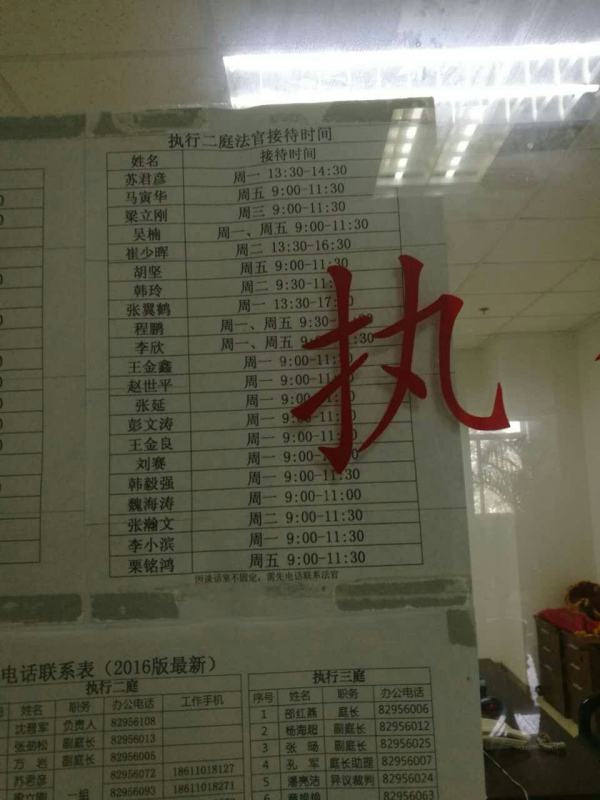 执行二庭法官接待时间
姓名 接待时间
苏君彦 周一 13:30-14:30
马寅华 周五 9:00-11:30
梁立刚 周三 9:00-11:30
吴楠 周一、周五 9:00-11:30
崔少晖 周二 13:30-16:30
胡坚 周五 9:00-11:30
韩玲 周二 9:30-11:
张翼鹤 周一 13:30-17:
程鹏 周一、周五 9:30-
李欣 周一、周五 9:
王金鑫 周一 9:00-11:
赵世平 周一 9:00-11
张延 周一 9:00-11
彭文涛 周一 9:00-11:
王金良 周一 9:00-11:
刘赛 周一 9:00-11:30
韩毅强 周一 9:00-11:30
魏海涛 周一 9:00-11:00
张瀚文 周二 9:00-11:30
李小滨 周一 9:00-11:30
栗铭鸿 周五 9:00-11:30
因谈话室不固定，需先电话联系法官
执
电话联系表（2016版最新）
执行二庭
姓名 职务 办公电话 工作手机
负责人 82956108
张弢松 副庭长 82956013
方岩 副庭长 82956005
苏君彦 82956072 18611018127
梁立刚 一组 82956093 18611018271
执行三庭
序号 姓名 职务 办公电话
1 邵红燕 庭长 82956006
2 杨海超 副庭长 82956012
3 张旸 副庭长 82956025
4 孔军 庭长助理 82956007
5 潘亮洁 异议裁判 82956024
6 82956063